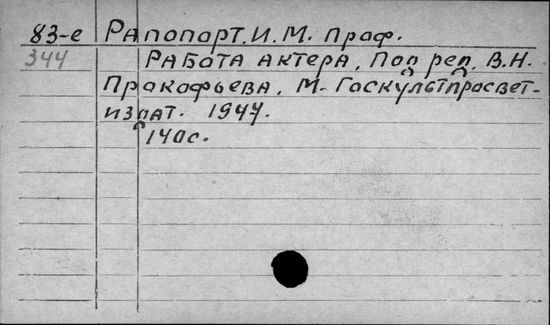 83-е Рапопорт, И. М. Праф.
344 Работа актера, Под ред. В.Н.
Пракафьева, М- Госкультпросвет-
издат. 1947.
140с.